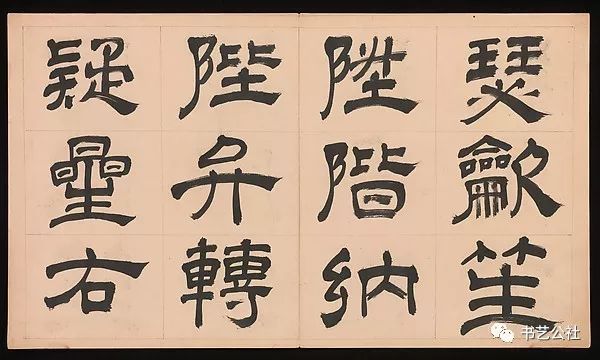 瑟龡笙
陞階納
陛弁轉
疑曐右
书艺公社